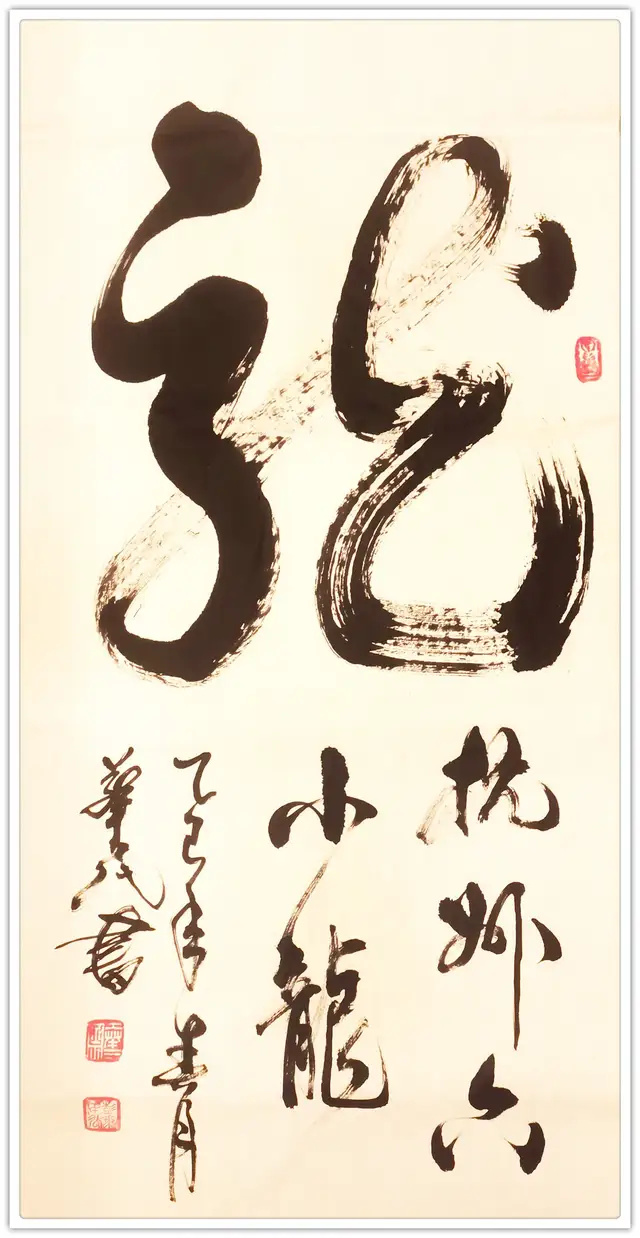 龍
杭州六
小龍
乙巳年春月
華 書